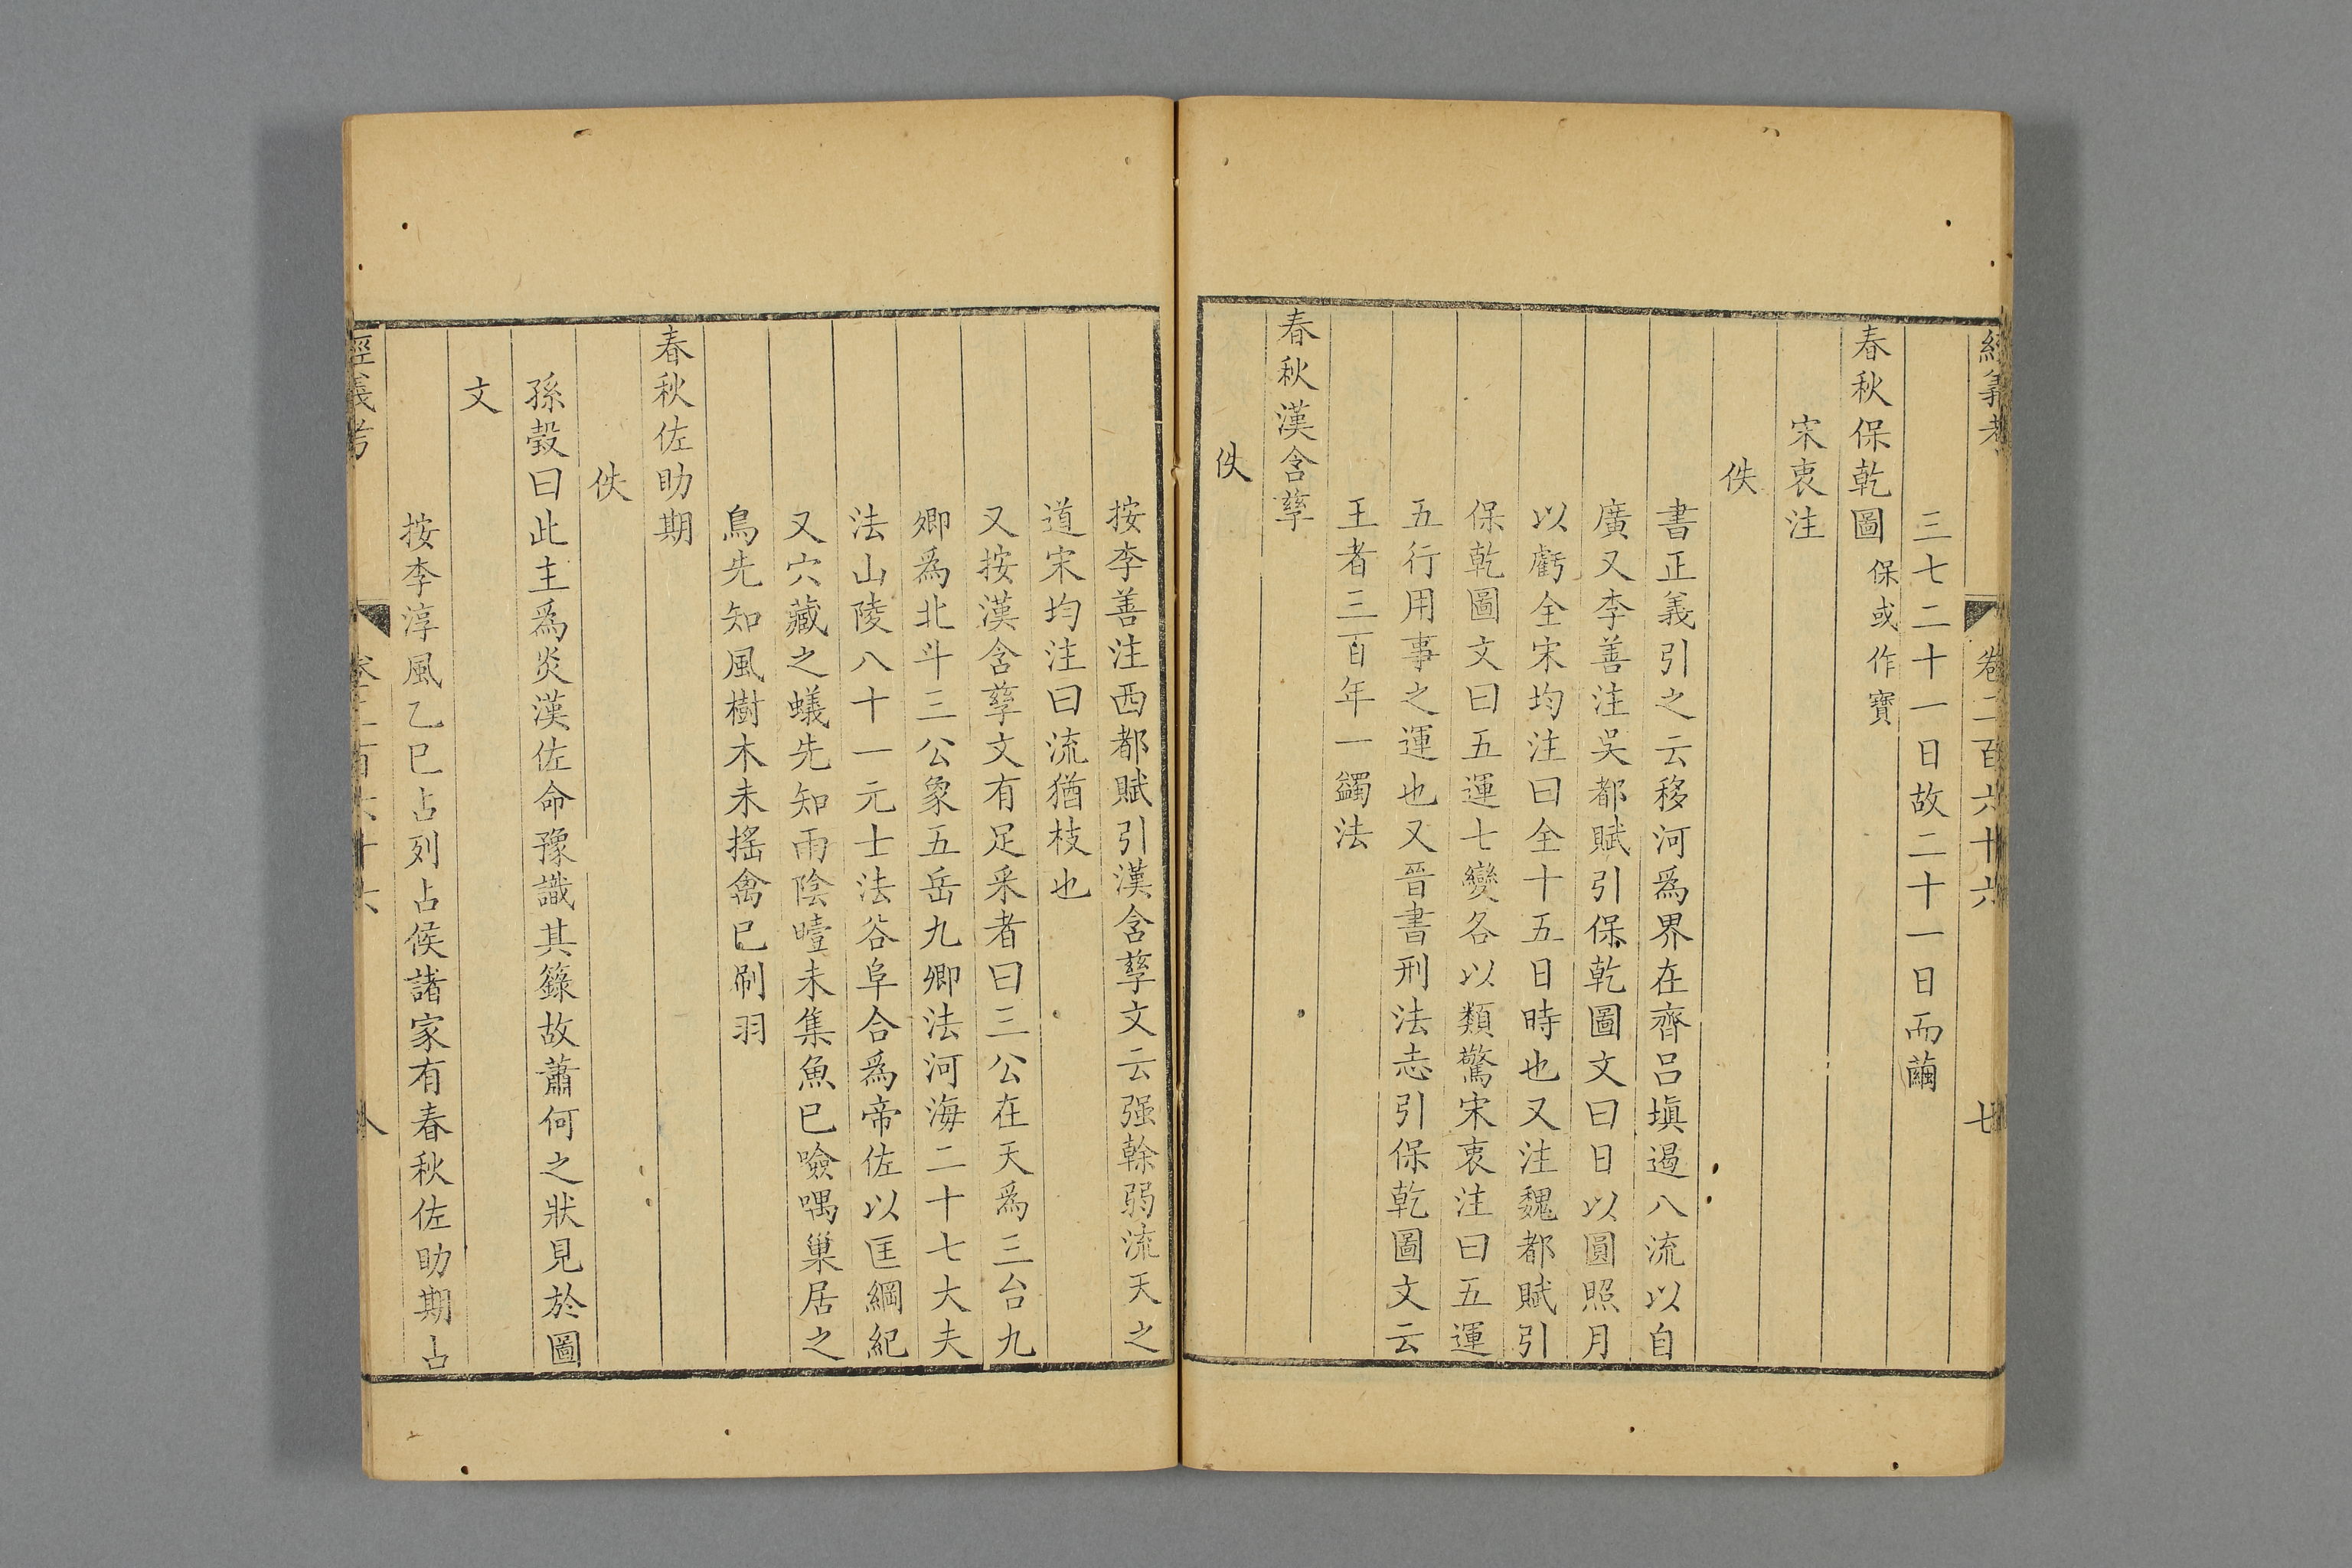 經義考 卷二百六十六 七
三七二十一日故二十一日而繭
春秋保乾圖 保或作寶
宋衷注
佚
書正義引之云移河爲界在齊呂塡遏八流以自
廣又李善注吳都賦引保乾圖文曰日以圓照月
以虧全宋均注曰全十五日時也又注魏都賦引
保乾圖文曰五運七變各以類驚宋衷注曰五運
五行用事之運也又晉書刑法志引保乾圖文云
王者三百年一蠲法
春秋漢含孳
佚
按李善注西都賦引漢含孳文云强榦弱流天之
道宋均注曰流猶枝也
又按漢含孳文有足采者曰三公在天爲三台九
卿爲北斗三公象五岳九卿法河海二十七大夫
法山陵八十一元士法谷阜合爲帝佐以匡綱紀
又穴藏之蟻先知雨陰曀未集魚已噞喁巢居之
鳥先知風樹木未搖禽已刷羽
春秋佐助期
佚
孫瑴曰此主爲炎漢佐命豫識其籙故蕭何之狀見於圖
文
按李淳風乙巳占列占候諸家有春秋佐助期占
經義考 卷二百六十六 八